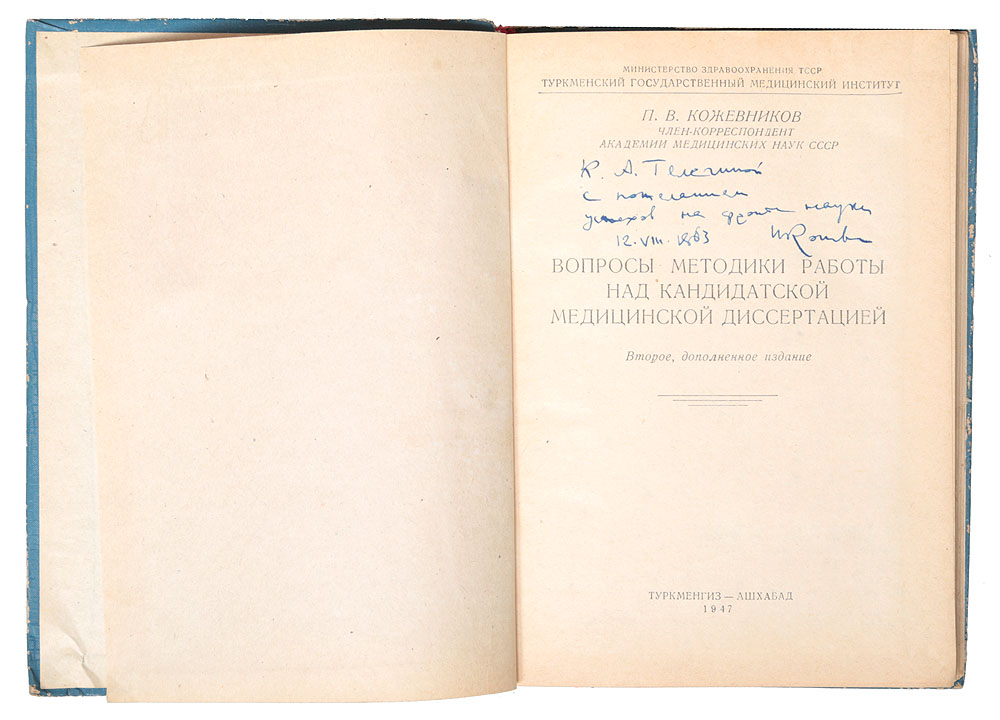 МИНИСТЕРСТВО ЗДРАВООХРАНЕНИЯ ТССР
ТУРКМЕНСКИЙ ГОСУДАРСТВЕННЫЙ МЕДИЦИНСКИЙ ИНСТИТУТ
П. В. КОЖЕВНИКОВ
ЧЛЕН-КОРРЕСПОНДЕНТ
АКАДЕМИИ МЕДИЦИНСКИХ НАУК СССР
К. А.
с пожеланием
успехов на фронте науки
12.VIII.
ВОПРОСЫ МЕТОДИКИ РАБОТЫ
НАД КАНДИДАТСКОЙ
МЕДИЦИНСКОЙ ДИССЕРТАЦИЕЙ
Второе, дополненное издание
ТУРКМЕНГИЗ — АШХАБАД
1947